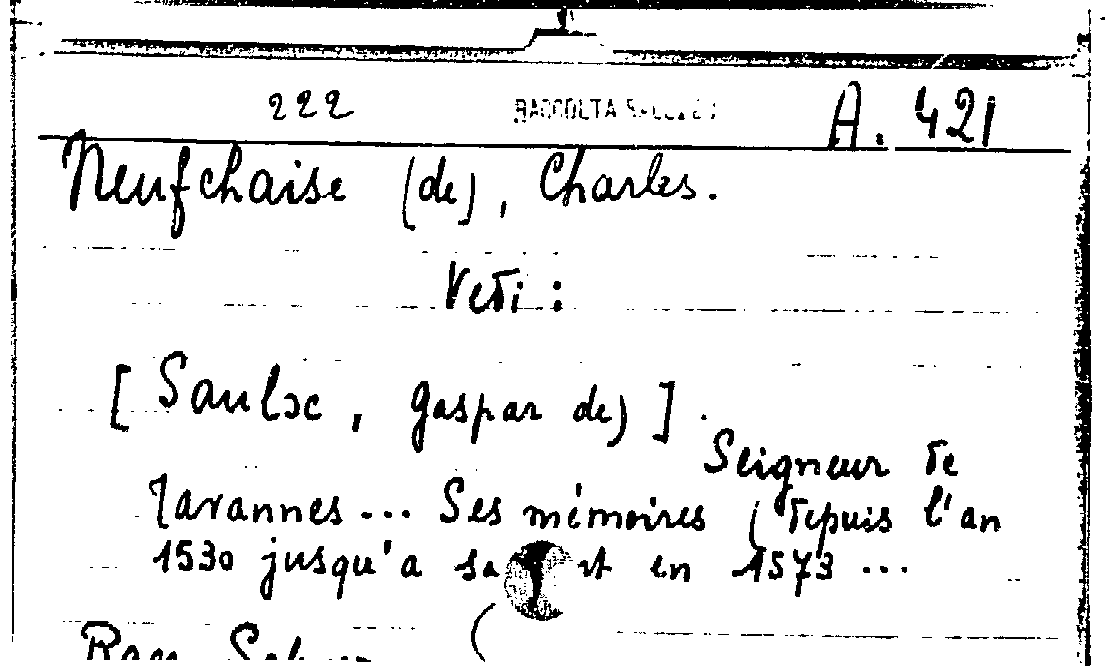 222 RACCOLTA A. 421
Neufchaise (de), Charles.
Vedi :
[ Saulx, Gaspar de) ].
Seigneur de
Tavannes... Ses mémoires (depuis l'an
1530 jusqu'a sa en 1573 ...